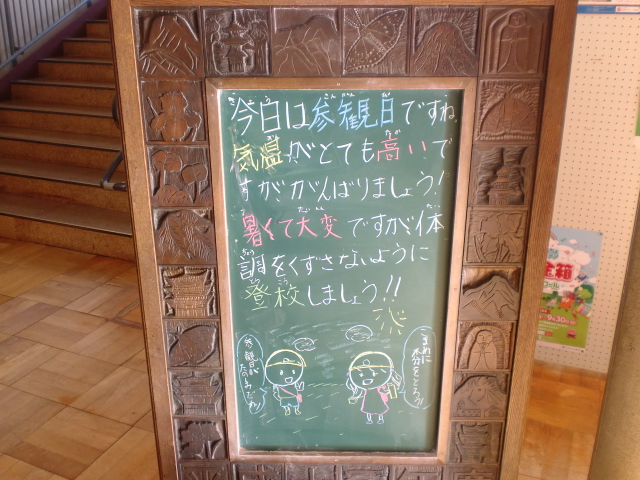 今日は参観日ですね。
気温がとても高いで
すががんばりましょう!
暑くて大変ですが体
調をくずさないように
登校しましょう!!
参観日が
たのしみだね
まめに
水分をとろう!
9月30日